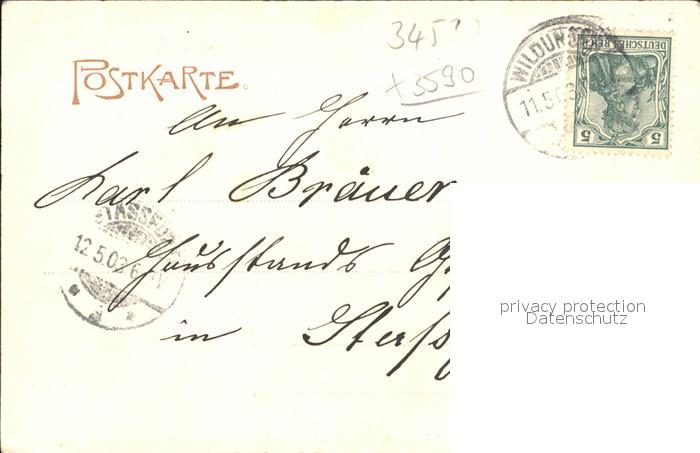 POSTKARTE.
+3590
WILDUN
11.5.0
DEUTSCHES REICH
5
5
An Herrn
Karl Bräuer
STASSFU
12.5.02 6
Hausstands
in Staßf
privacy protection
Datenschutz